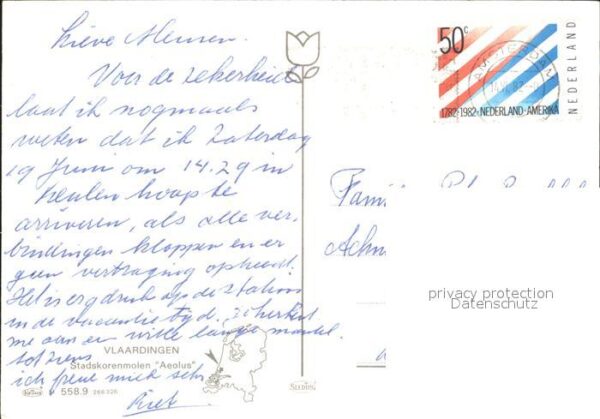 Lieve Mensen.
Voor de zekerheid
laat ik nogmaals
weten dat ik Zaterdag
19 Juni om 14.29 in
Keulen hoop te
arriveren, als alle ver-
bindingen kloppen en er
geen vertraging optreedt.
Het is erg druk op de stations
in de vacantie tijd.
me aan een witte lange mantel.
tot ziens
ich freue mich sehr
50c
1782-1982 NEDERLAND-AMERIKA
NEDERLAND
AMSTERDAM
Fami
privacy protection
Datenschutz
VLAARDINGEN
Stadskorenmolen "Aeolus"
v 558.9 266326